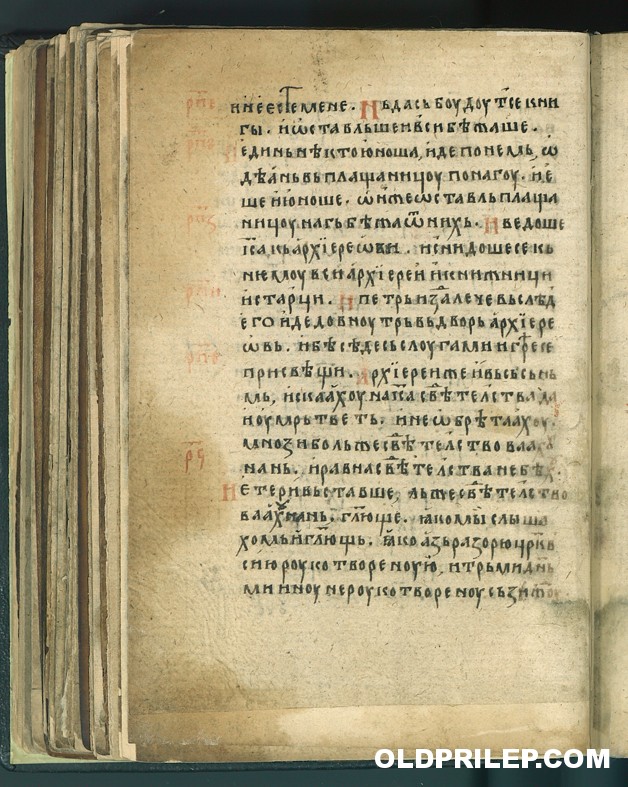 и не ѥсте мене. Нь да сьбоудоут се кни
гы. и ѡставльше и вси бѣжаше.
единь нѣкто юноша, иде по немь, ѡ
дѣань вь плащаницоу по нагоу. и ѥ
ше и юноше. ѡн же ѡставль плаща
ницоу нагь бѣжа ѿ них. И ведоше
іс҃а кь архїереѡви. и снидоше се кь
нѥмоу вси архїереи и книжници
и старци. И петрь издалече вь слѣд
ѥго иде до вноутрь вь дворь архїере
ѡвь. и бѣ сѣде сь слоугами и грѣе се
при свѣщи. Архїереи же и вьсь сьнь
мь, искаахоу на іс҃а свѣтелства да
и оумрьтветь. и не ѡбрѣтаахоу.
мнози бо льжесвѣтелство
на нь. и равна свѣтелства не бѣх.
И ѥтери вьставше, льжесвѣтелство
на нь. гл҃юще. яко мы слыша
хомь и гл҃ющь. яко азь разорю црк҃в
сию роукотвореноую, и трьми дн҃ь
ми иноу нероукотвореноу сьзижоу
рп҃е
рп҃ѕ
рп҃з
рп҃и
рп҃ѳ
рч҃
OLDPRILEP.COM